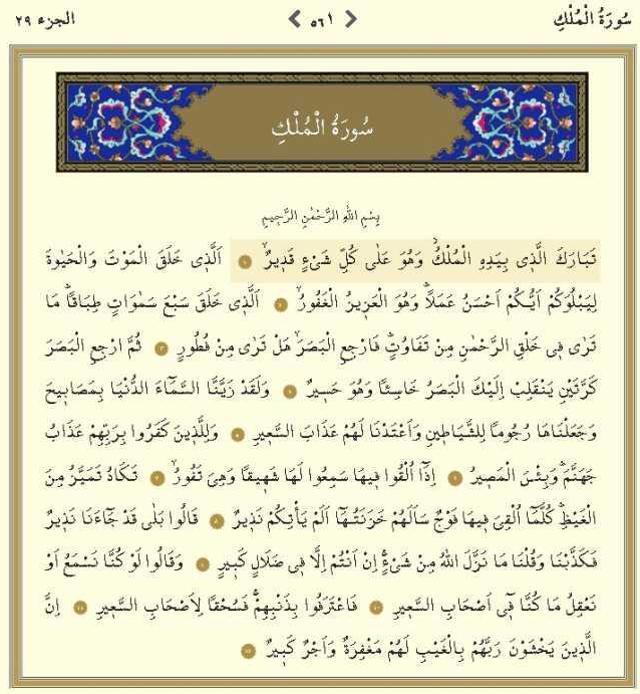 سُورَةُ الْمُلْكِ ٥٦١ الجزء ٢٩
سُورَةُ الْمُلْكِ
بِسْمِ اللّٰهِ الرَّحْمٰنِ الرَّح۪يمِ
تَبَارَكَ الَّذ۪ي بِيَدِهِ الْمُلْكُۘ وَهُوَ عَلٰى كُلِّ شَيْءٍ قَد۪يرٌۙ ١ اَلَّذ۪ي خَلَقَ الْمَوْتَ وَالْحَيٰوةَ
لِيَبْلُوَكُمْ اَيُّكُمْ اَحْسَنُ عَمَلًاۜ وَهُوَ الْعَز۪يزُ الْغَفُورُۙ ٢ اَلَّذ۪ي خَلَقَ سَبْعَ سَمٰوَاتٍ طِبَاقًاۜ مَا
تَرٰى ف۪ي خَلْقِ الرَّحْمٰنِ مِنْ تَفَاوُتٍۜ فَارْجِعِ الْبَصَرَۙ هَلْ تَرٰى مِنْ فُطُورٍ ٣ ثُمَّ ارْجِعِ الْبَصَرَ
كَرَّتَيْنِ يَنْقَلِبْ اِلَيْكَ الْبَصَرُ خَاسِئًا وَهُوَ حَس۪يرٌ ٤ وَلَقَدْ زَيَّنَّا السَّمَٓاءَ الدُّنْيَا بِمَصَاب۪يحَ
وَجَعَلْنَاهَا رُجُومًا لِلشَّيَاط۪ينِ وَاَعْتَدْنَا لَهُمْ عَذَابَ السَّع۪يرِ ٥ وَلِلَّذ۪ينَ كَفَرُوا بِرَبِّهِمْ عَذَابُ
جَهَنَّمَۜ وَبِئْسَ الْمَص۪يرُ ٦ اِذَٓا اُلْقُوا ف۪يهَا سَمِعُوا لَهَا شَه۪يقًا وَهِيَ تَفُورُۙ ٧ تَكَادُ تَمَيَّزُ مِنَ
الْغَيْظِۜ كُلَّمَٓا اُلْقِيَ ف۪يهَا فَوْجٌ سَاَلَهُمْ خَزَنَتُهَٓا اَلَمْ يَأْتِكُمْ نَذ۪يرٌ ٨ قَالُوا بَلٰى قَدْ جَٓاءَنَا نَذ۪يرٌ
فَكَذَّبْنَا وَقُلْنَا مَا نَزَّلَ اللّٰهُ مِنْ شَيْءٍۚ اِنْ اَنْتُمْ اِلَّا ف۪ي ضَلَالٍ كَب۪يرٍ ٩ وَقَالُوا لَوْ كُنَّا نَسْمَعُ اَوْ
نَعْقِلُ مَا كُنَّا ف۪ٓي اَصْحَابِ السَّع۪يرِ ١٠ فَاعْتَرَفُوا بِذَنْبِهِمْۚ فَسُحْقًا لِاَصْحَابِ السَّع۪يرِ ١١ اِنَّ
الَّذ۪ينَ يَخْشَوْنَ رَبَّهُمْ بِالْغَيْبِ لَهُمْ مَغْفِرَةٌ وَاَجْرٌ كَب۪يرٌ ١٢